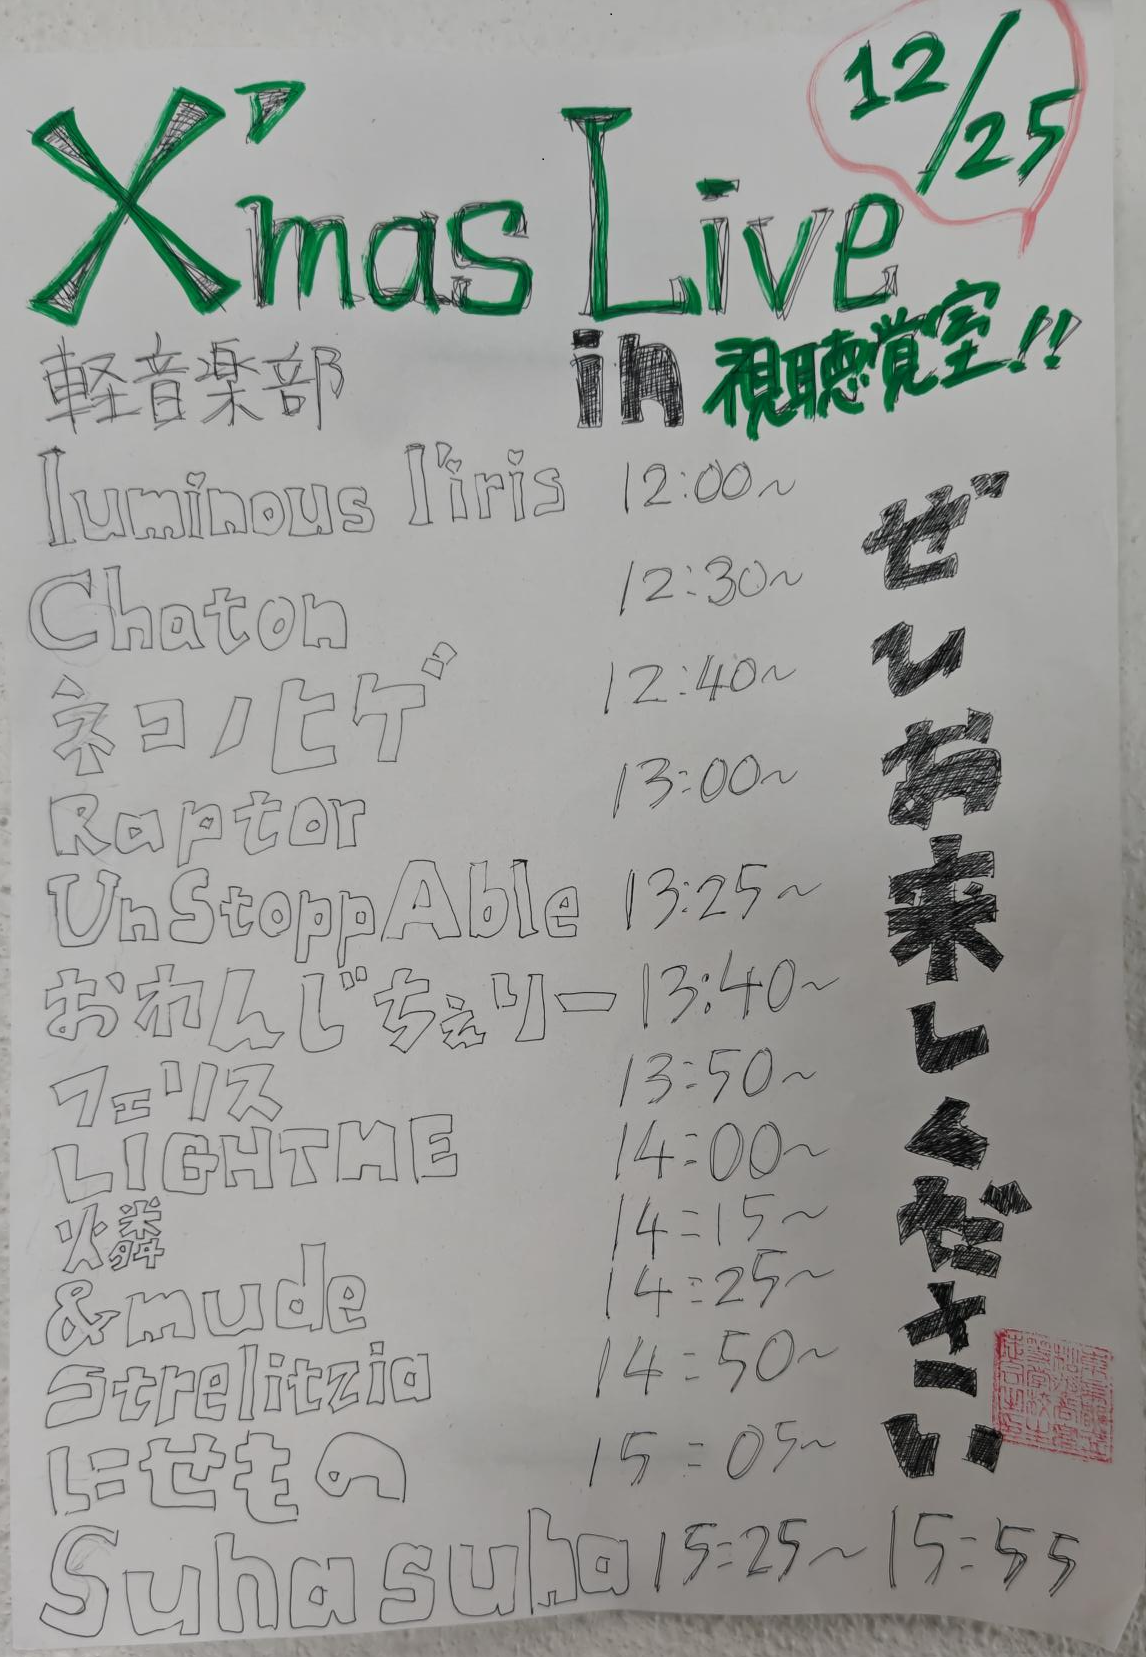 12/25
X'mas Live
軽音楽部 in 視聴覚室!!
luminous l'iris 12:00~
Chaton 12:30~
ネコノヒゲ 12:40~
Raptor 13:00~
UnStoppAble 13:25~
おわんじちぇりー 13:40~
フェリス 13:50~
LIGHTME 14:00~
燐 14:15~
&mude 14:25~
Strelitzia 14:50~
にせもの 15:05~
Suhasuha 15:25~15:55
ぜひお来しください